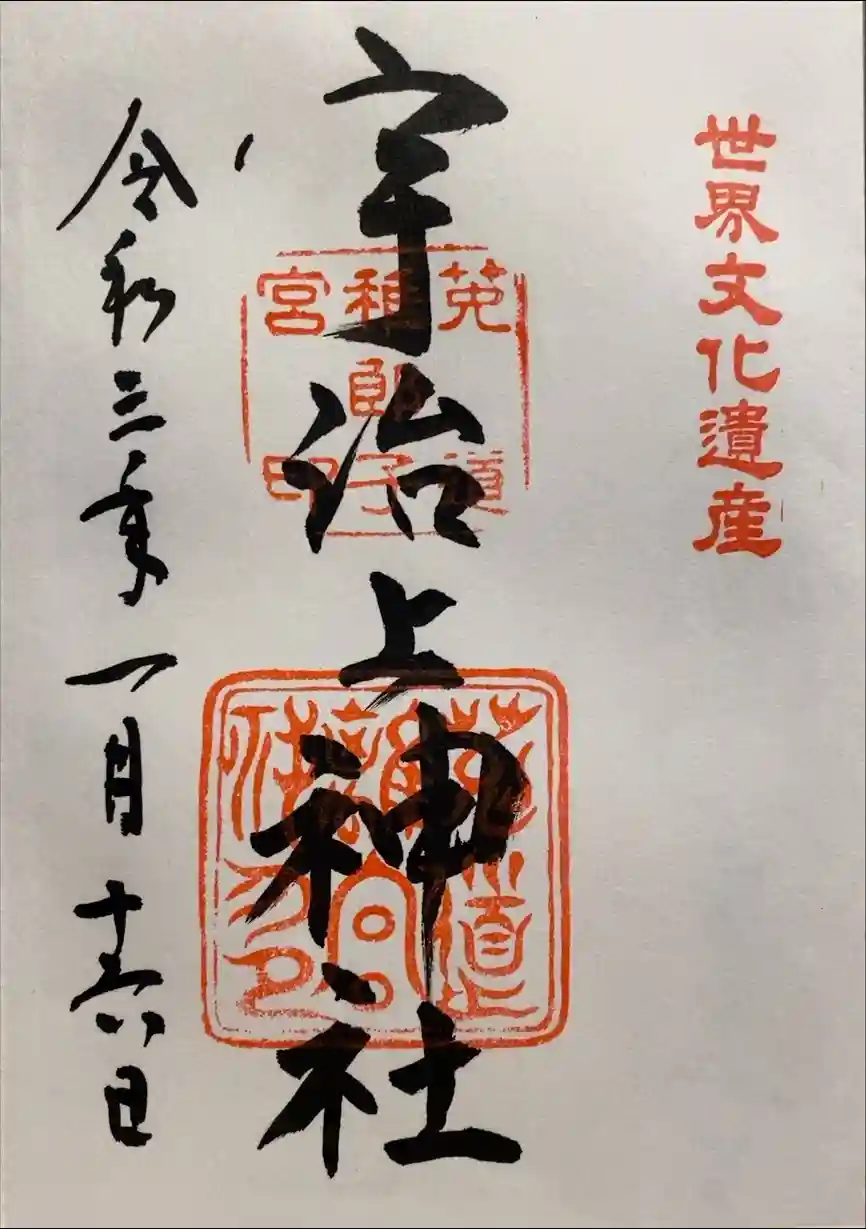 世界文化遺産
宇治上神社
菟道
稚郎子
宮印
菟道
離宮
令和三年一月十六日